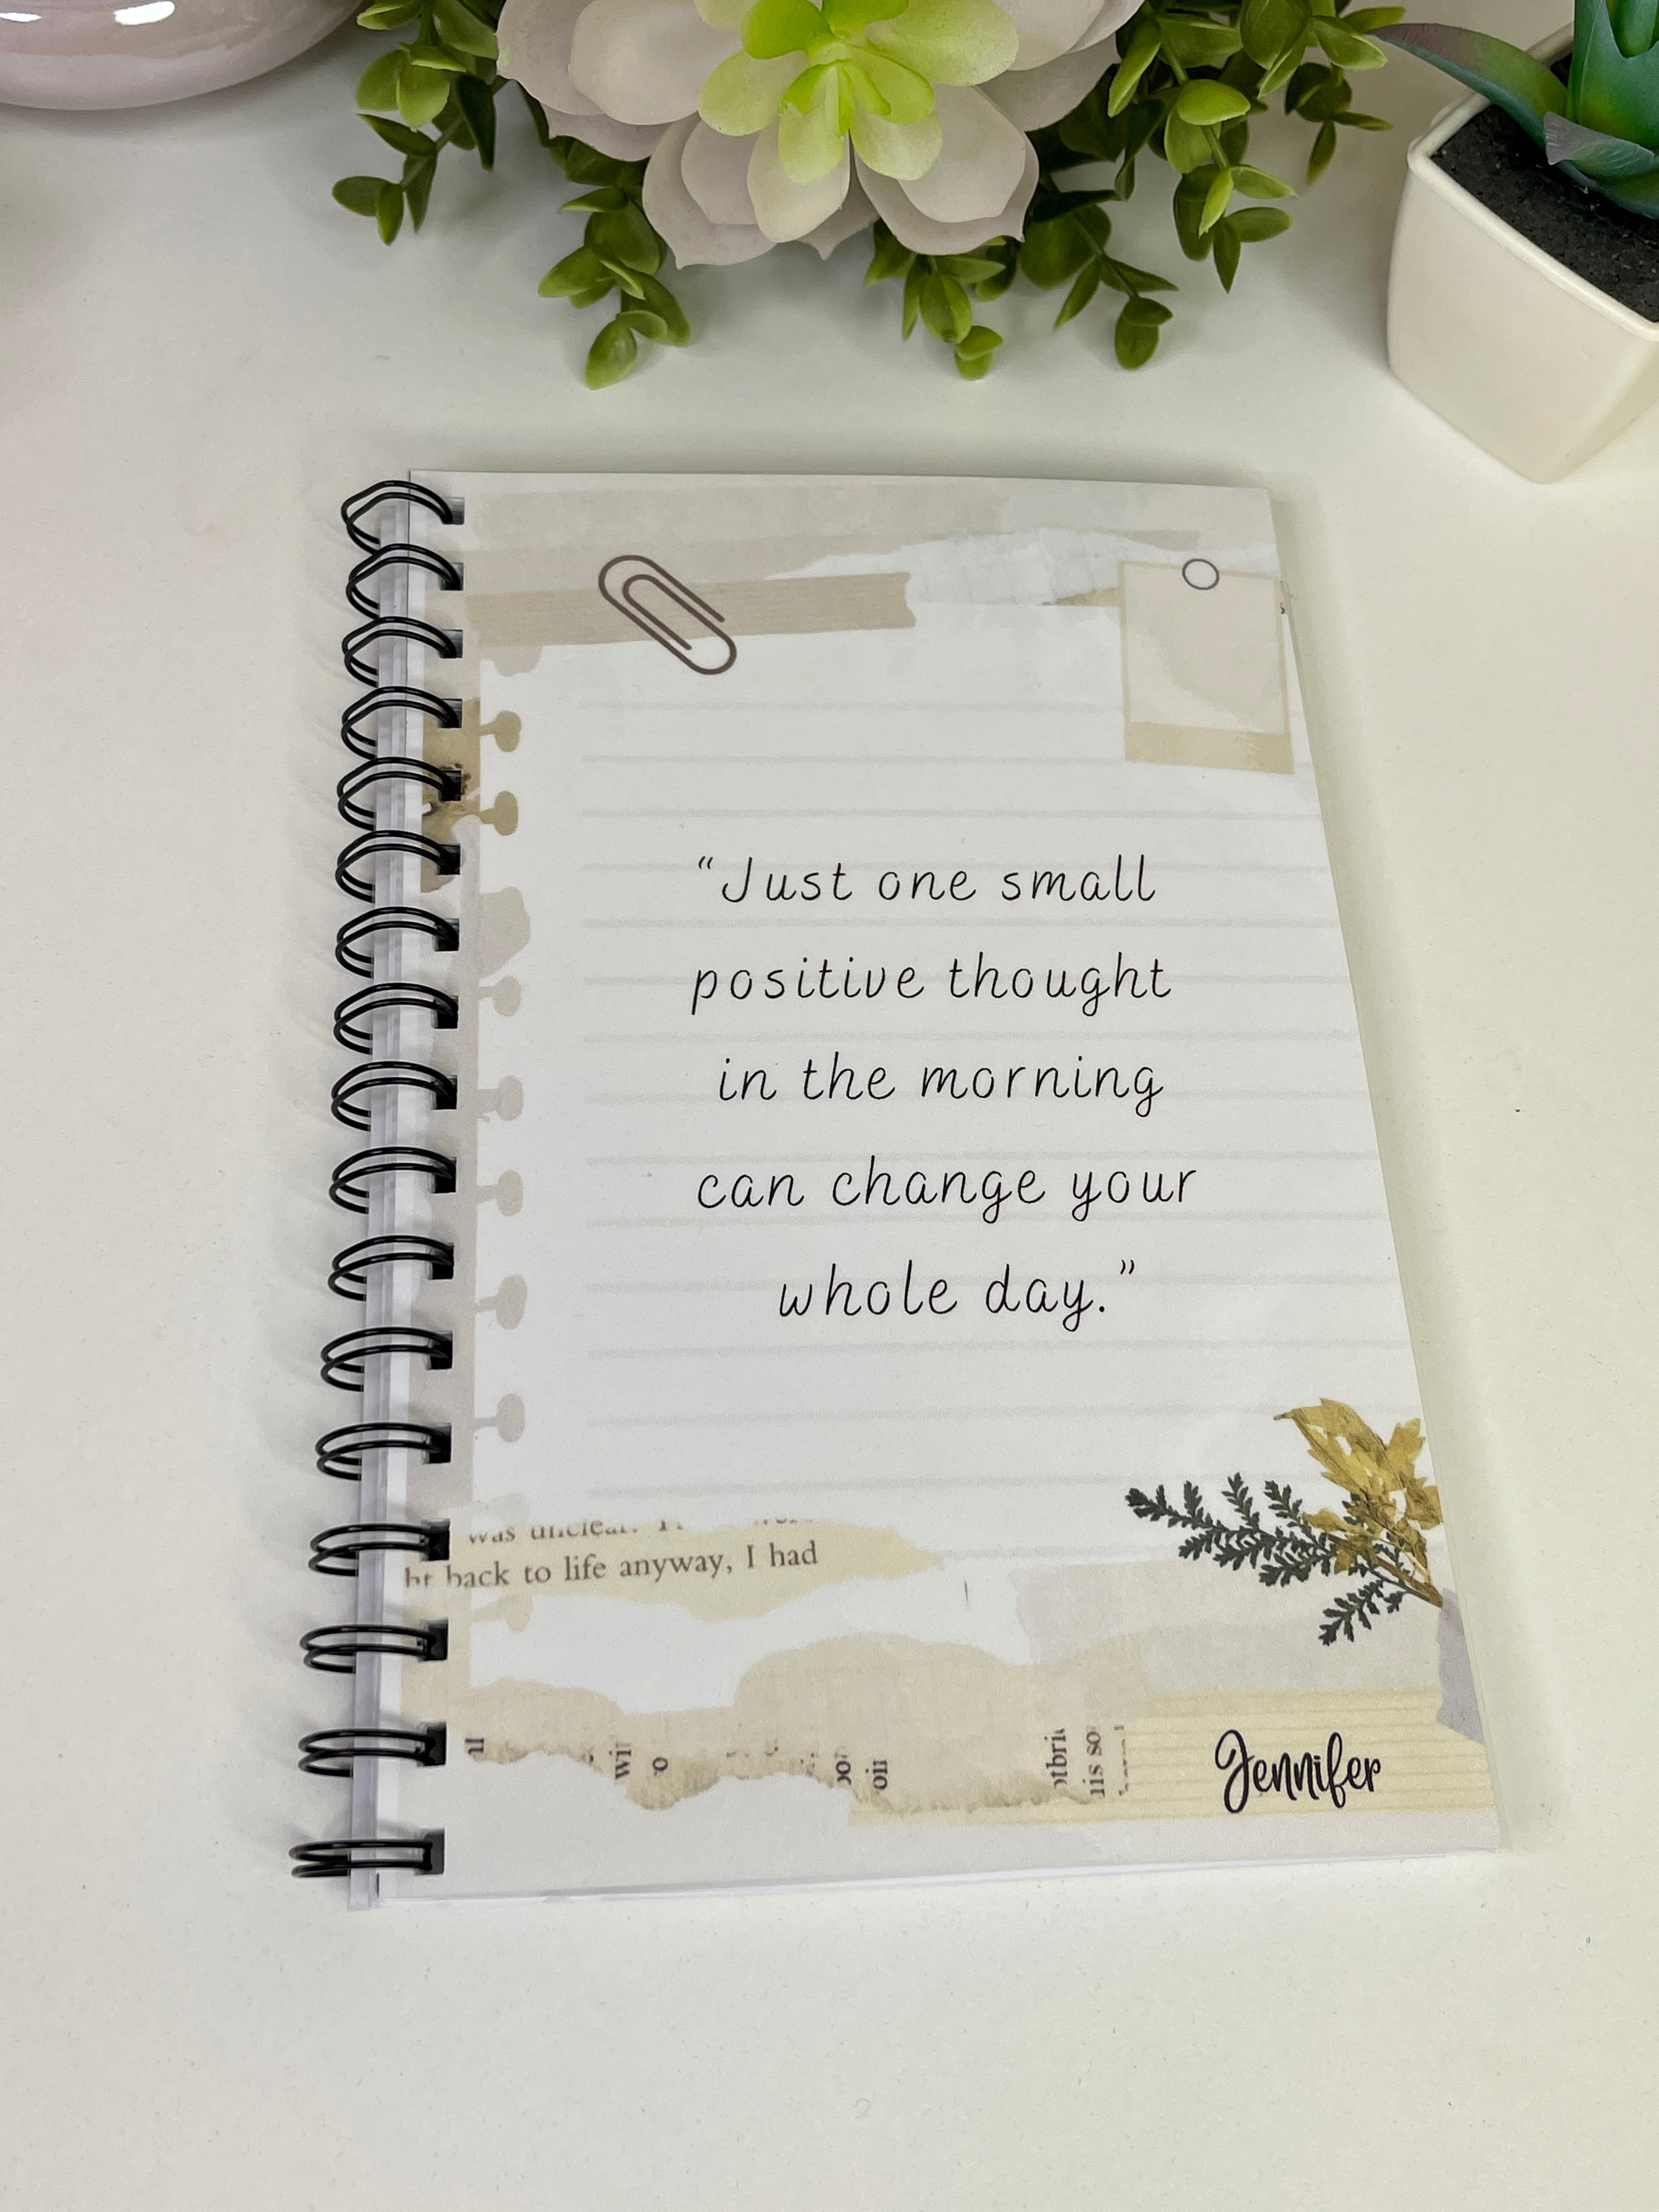 “Just one small
positive thought
in the morning
can change your
whole day.”
was unclear.
back to life anyway, I had
Jennifer